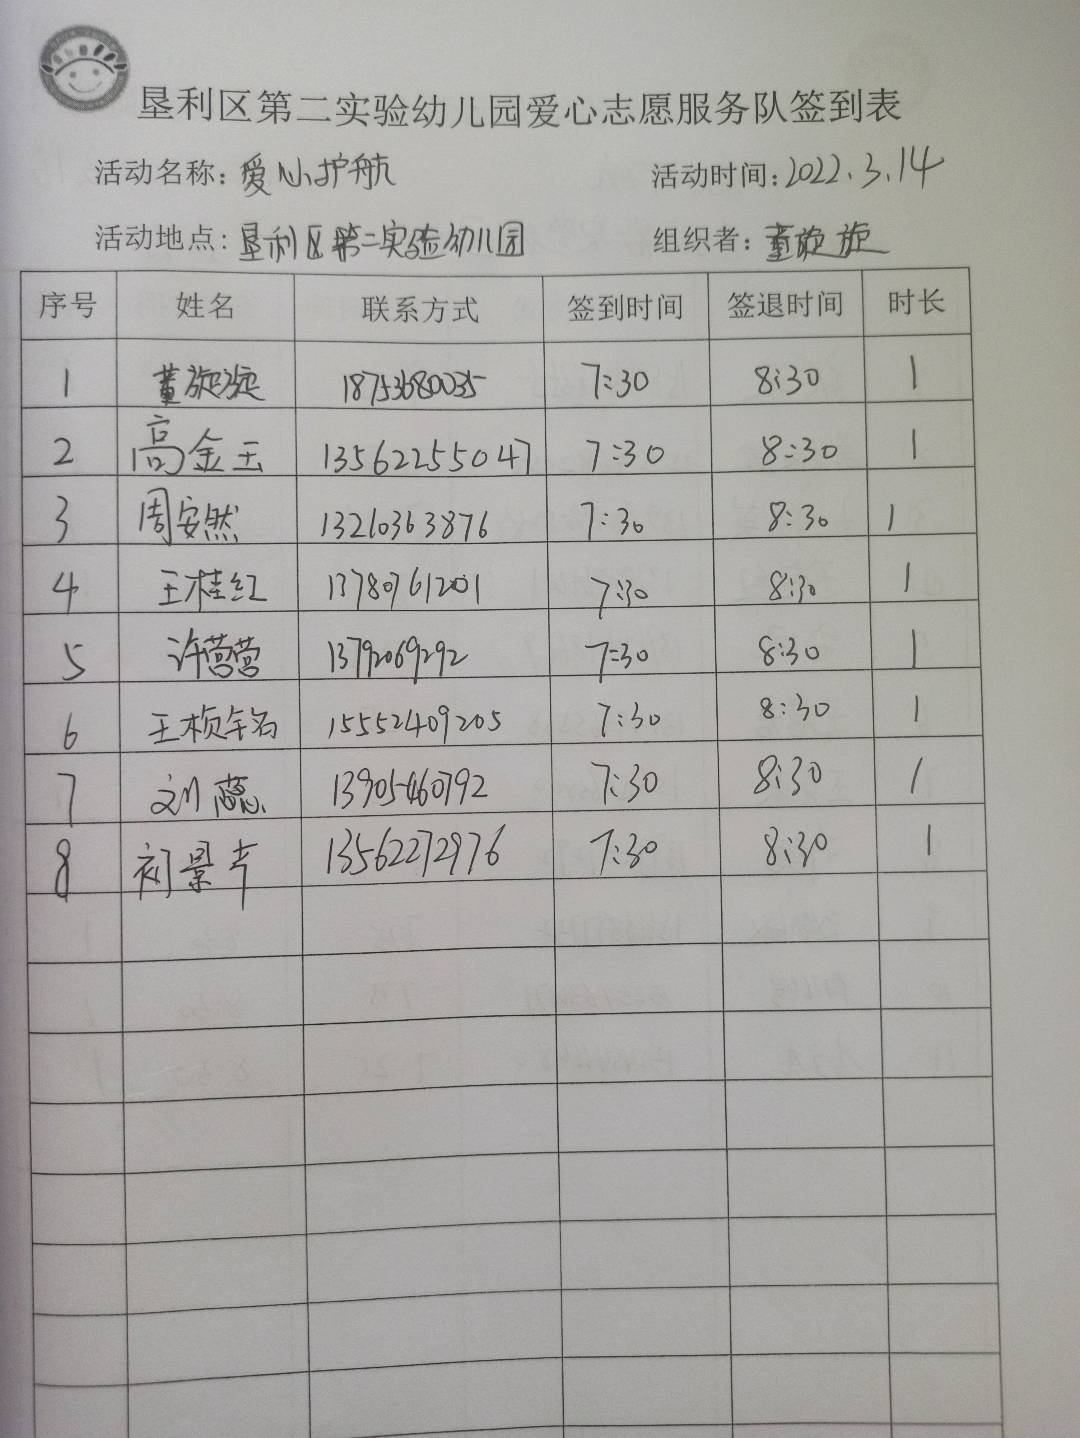 垦利区第二实验幼儿园爱心志愿服务队签到表
活动名称：爱心护航 活动时间：2022.3.14
活动地点：垦利区第二实验幼儿园 组织者：董旋旋
序号 姓名 联系方式 签到时间 签退时间 时长
1 董旋旋 18753680035 7:30 8:30 1
2 高金玉 13562255047 7:30 8:30 1
3 周安然 13210363876 7:30 8:30 1
4 王桂红 13780761201 7:30 8:30 1
5 许营营 13792069292 7:30 8:30 1
6 王桢铭 15552409205 7:30 8:30 1
7 刘蕊 13905460792 7:30 8:30 1
8 初景 13562272976 7:30 8:30 1